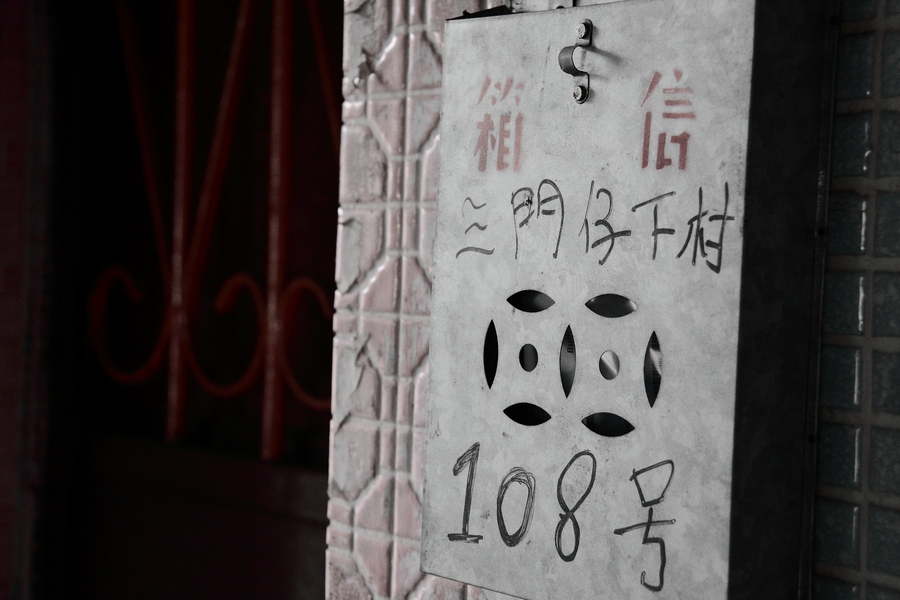 信箱
三門仔下村
108号